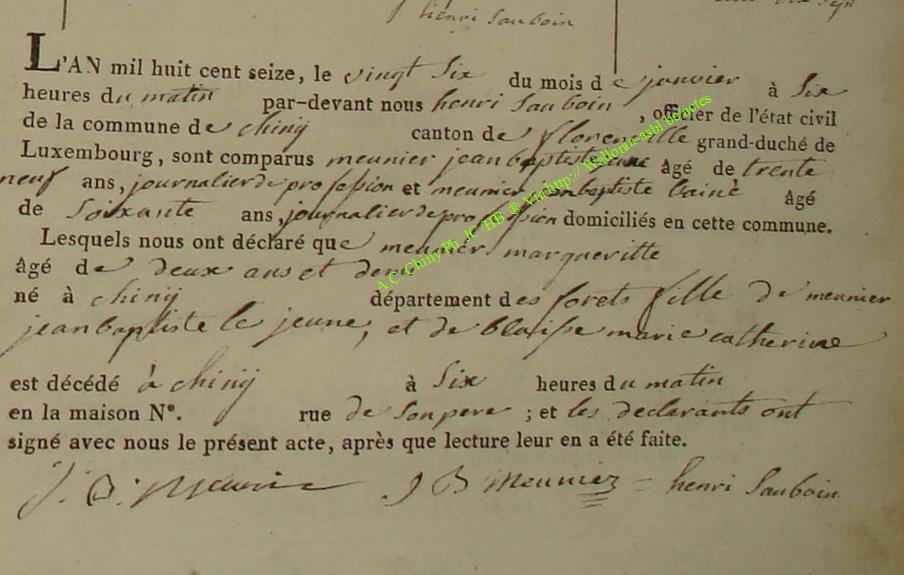 henri Sauboin
L'AN mil huit cent seize, le vingt Six du mois de janvier à Six
heures du matin par-devant nous henri Sauboin, officier de l'état civil
de la commune de chiny canton de florenville grand-duché de
Luxembourg, sont comparus meunier jean baptiste june âgé de trente
neuf ans, journalier de profession et meunier jean baptiste lainé âgé
de Soixante ans, journalier de profession domiciliés en cette commune.
Lesquels nous ont déclaré que meunier margueritte
âgé de deux ans et demi
né à chiny département des forets fille de meunier
jean baptiste le jeune, et de blaisse marie catherine
est décédé à chiny à Six heures du matin
en la maison N°. rue de Son pere ; et les declarants ont
signé avec nous le présent acte, après que lecture leur en a été faite.
J. B. Meunier J B Meunier henri Sauboin
A.C. Chiny Ph. JC/HB ® Vin http://Wallonia-asbl.be/notes